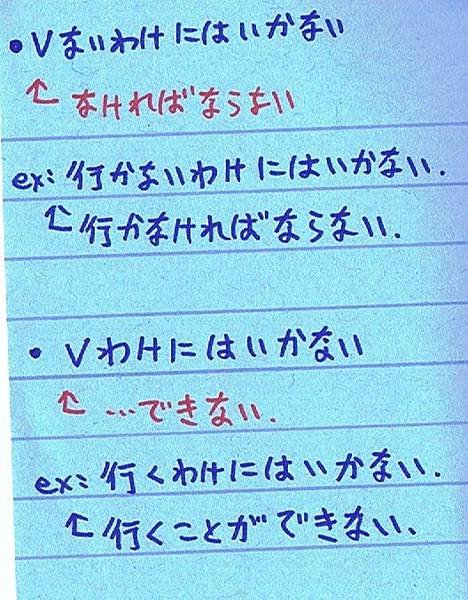 •Vないわけにはいかない
↑なければならない
ex:行かないわけにはいかない.
↑行かなければならない.
•Vわけにはいかない
↑…できない.
ex:行くわけにはいかない.
↑行くことができない.